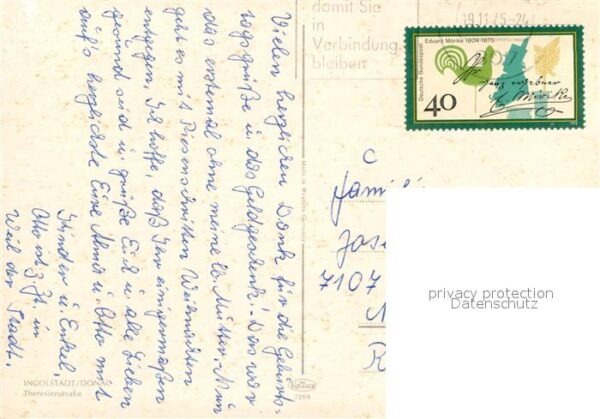 Vielen herzlichen Dank für die Geburts-
tagsgrüße u. das Geldgeschenk! Das war
das erstemal ohne meine lb. Mutter. Nun
geht es mit Riesenschritten Weihnachten
entgegen. Ich hoffe, daß Ihr einigermaßen
gesund seid u. grüße Euch u. alle Lieben
auf's herzlichste Eure Anna u. Otto mit
Kinder u. Enkel.
Otto ist z. Zt. in
Weil der Stadt.
INGOLSTADT/DONAU
Theresienstraße
Krüger
damit Sie
in
Verbindung
bleibert
19.11.75-24
Deutsche Bundespost
Eduard Mörike 1804-1875
ganz ergebner
Ed. Mörike
40
Famili
Jose
7107
N
R
privacy protection
Datenschutz